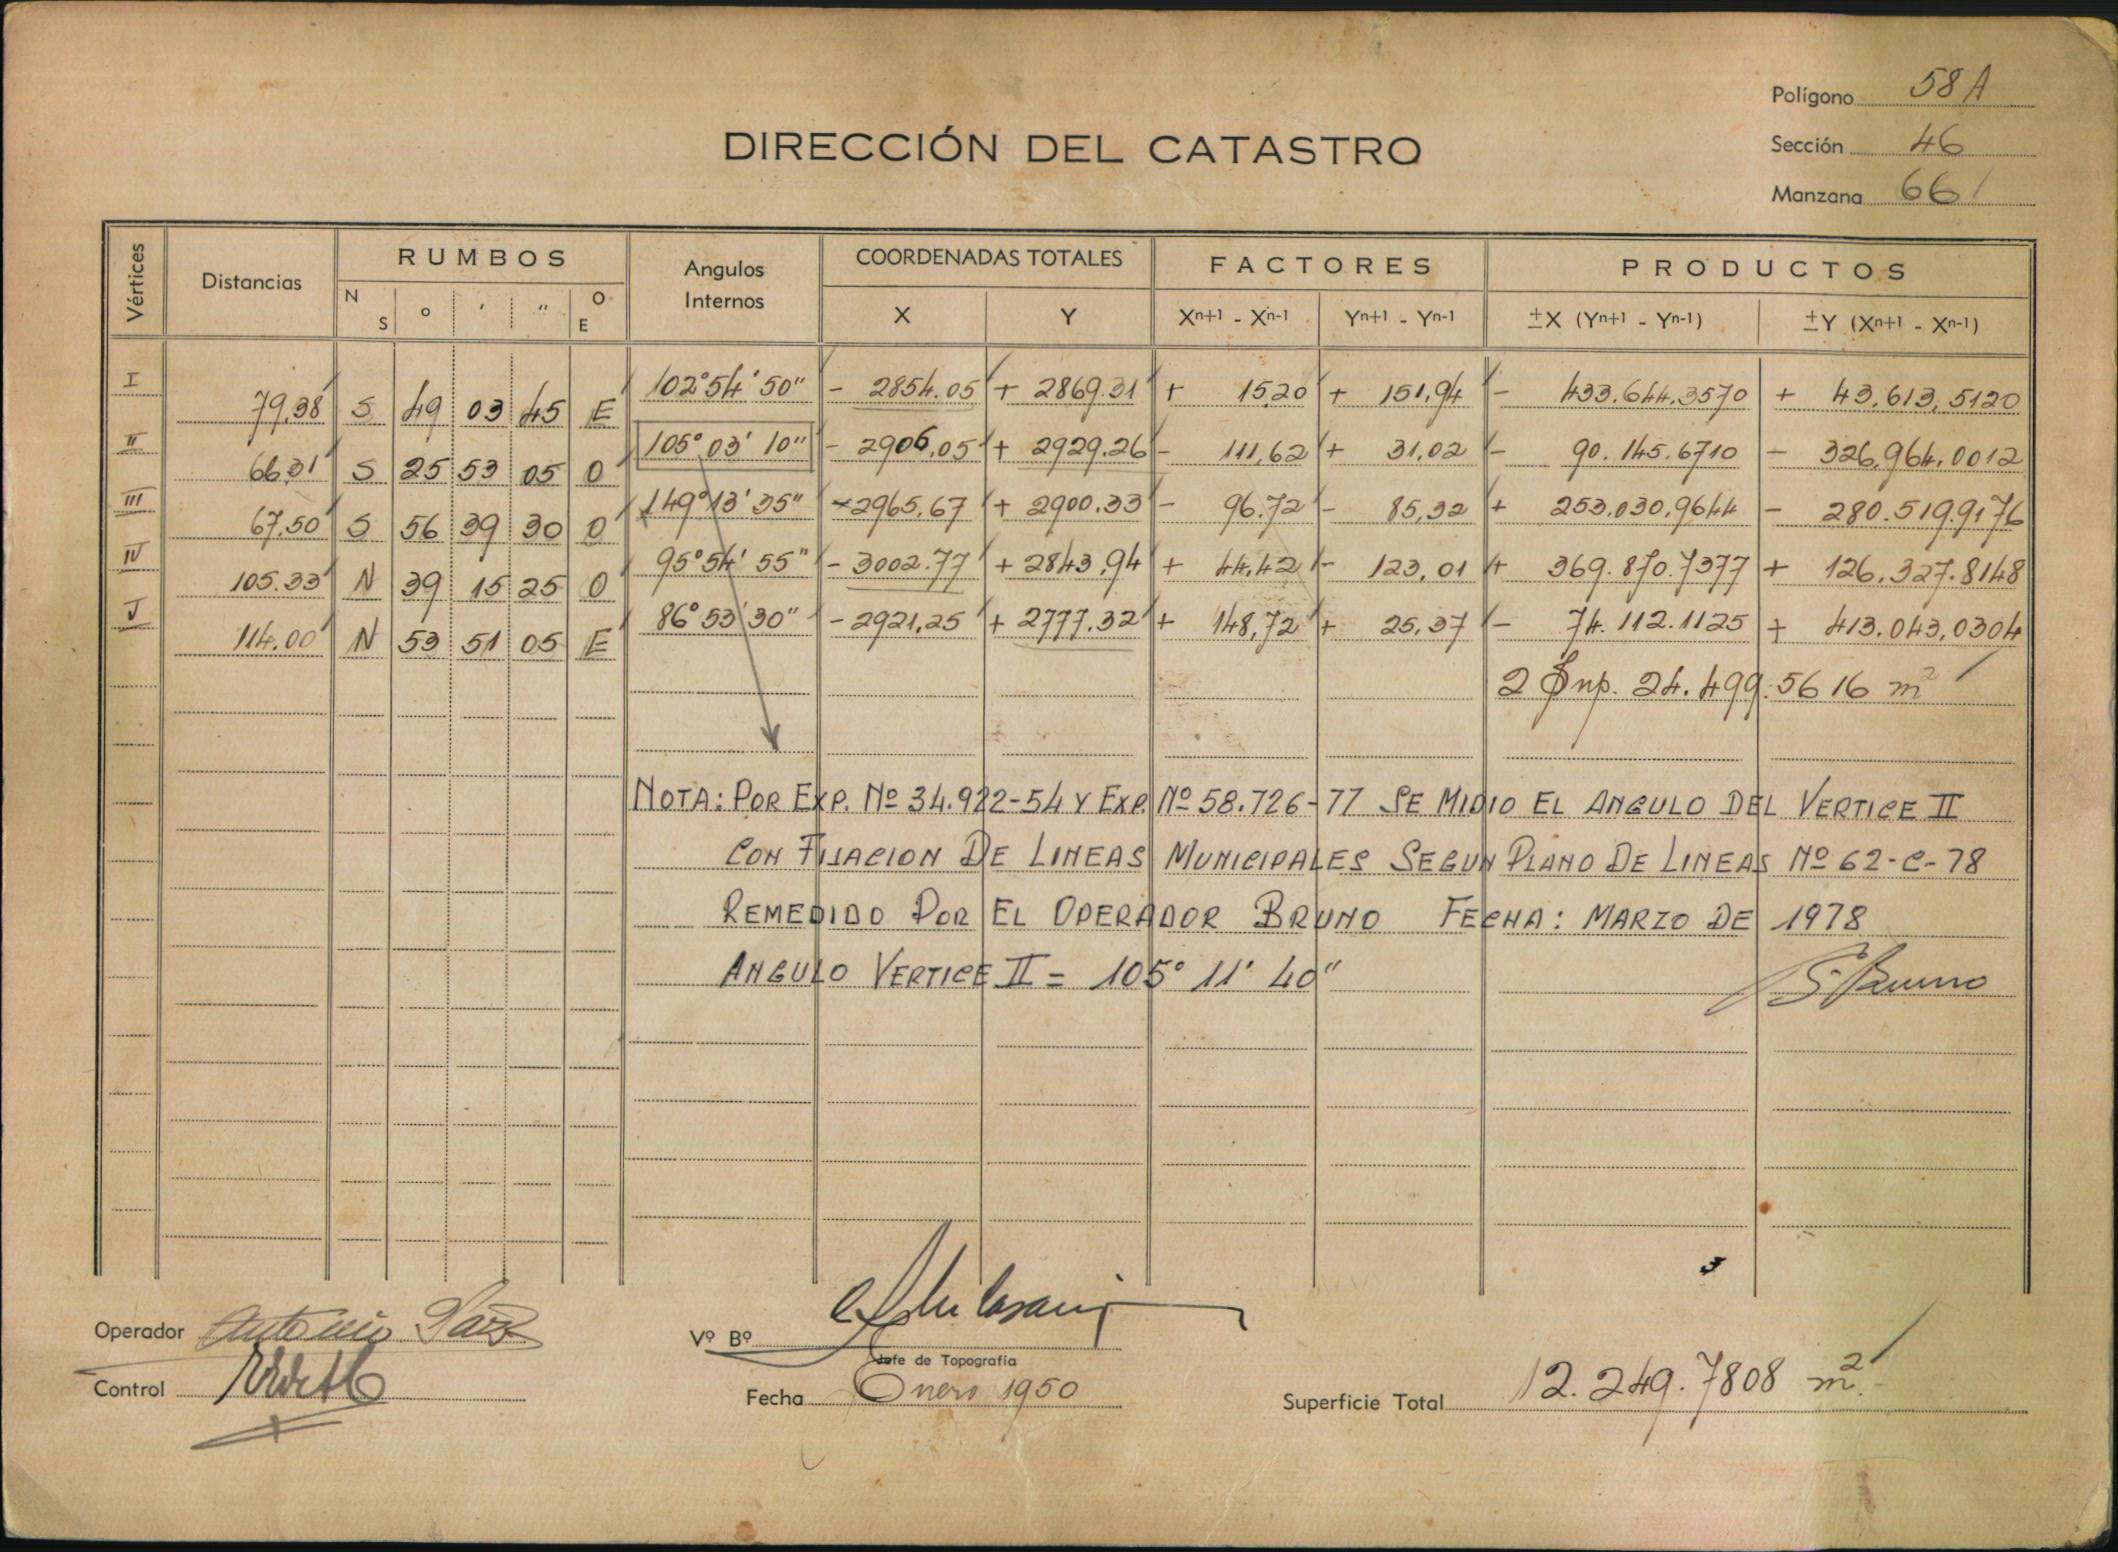 Polígono 58 A
DIRECCIÓN DEL CATASTRO
Sección 46
Manzana 661
Vértices Distancias RUMBOS Angulos Internos COORDENADAS TOTALES FACTORES PRODUCTOS
N S ° ' " O E X Y Xn+1 - Xn-1 Yn+1 - Yn-1 ±X (Yn+1 - Yn-1) ±Y (Xn+1 - Xn-1)
I 102°54'50" - 2854.05 + 2869.31 + 15,20 + 151,94 - 433.644,3570 + 43.613,5120
79,38 S 49 03 45 E
II 105°03'10" - 2906,05 + 2929.26 - 111,62 + 31,02 - 90.145.6710 - 326,964,0012
66,31 S 25 53 05 O
III 149°13'35" - 2965,67 + 2900.33 - 96.72 - 85,32 + 253.030,9644 - 280.519.9176
67,50 S 56 39 30 O
IV 95°54'55" - 3002.77 + 2843,94 + 44,42 - 123,01 + 369.870.7377 + 126.327.8148
105.33 N 39 15 25 O
V 86°53'30" - 2921,25 + 2777.32 + 148,72 + 25,37 - 74.112.1125 + 413.043,0304
114.00 N 53 51 05 E
2 Sup. 24.499.5616 m²
NOTA: POR EXP. Nº 34.922-54 Y EXP. Nº 58.726-77 SE MIDIO EL ANGULO DEL VERTICE II
CON FIJACION DE LINEAS MUNICIPALES SEGUN PLANO DE LINEAS Nº 62-C-78
REMEDIDO POR EL OPERADOR BRUNO FECHA: MARZO DE 1978
ANGULO VERTICE II = 105° 11' 40"
Bruno
Operador Antonio
Vº Bº
Jefe de Topografía
Control
Fecha Enero 1950
Superficie Total 12.249.7808 m²